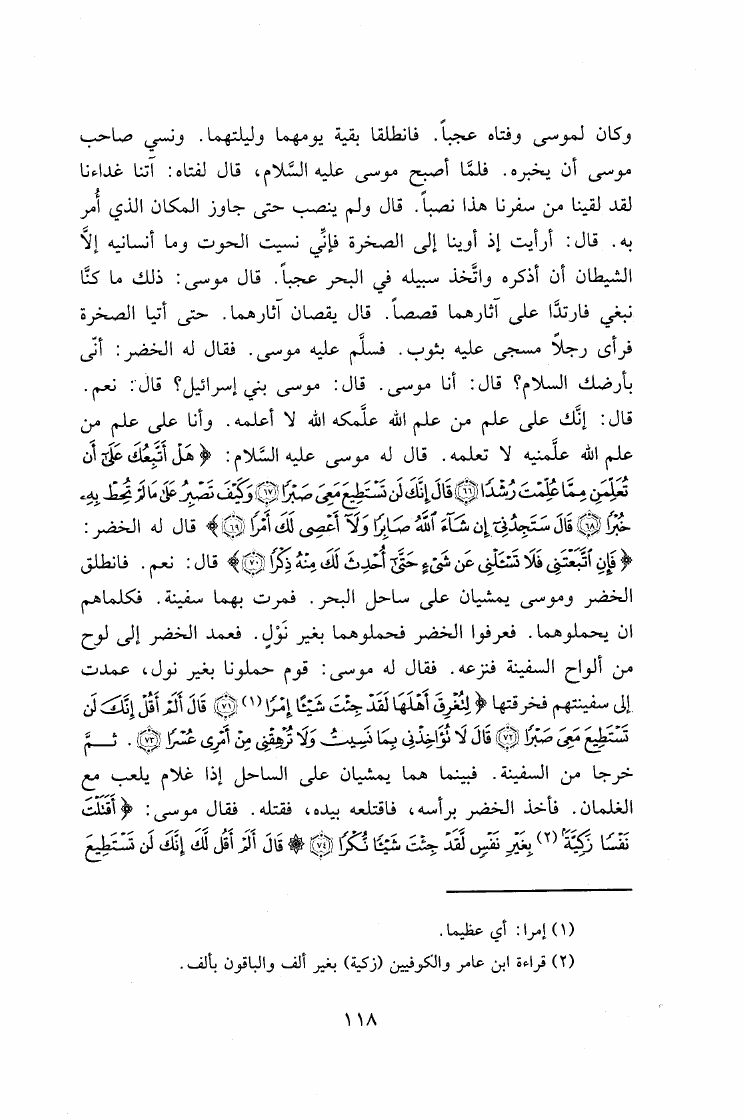 وكان لموسى وفتاه عجباً. فانطلقا بقية يومهما وليلتهما. ونسي صاحب
موسى أن يخبره. فلمَّا أصبح موسى عليه السَّلام، قال لفتاه: آتنا غداءنا
لقد لقينا من سفرنا هذا نصباً. قال ولم ينصب حتى جاوز المكان الذي أُمر
به. قال: أرأيت إذ أوينا إلى الصخرة فإنِّي نسيت الحوت وما أنسانيه إلاَّ
الشيطان أن أذكره واتَّخذ سبيله في البحر عجباً. قال موسى: ذلك ما كنَّا
نبغي فارتدَّا على آثارهما قصصاً. قال يقصان آثارهما. حتى أتيا الصخرة
فرأى رجلاً مسجى عليه بثوب. فسلَّم عليه موسى. فقال له الخضر: أنّى
بأرضك السلام؟ قال: أنا موسى. قال: موسى بني إسرائيل؟ قال: نعم.
قال: إنَّك على علم من علم الله علَّمكه الله لا أعلمه. وأنا على علم من
علم الله علَّمنيه لا تعلمه. قال له موسى عليه السَّلام: ﴿ هَلْ أَتَّبِعُكَ عَلَىٰٓ أَن
تُعَلِّمَنِ مِمَّا عُلِّمْتَ رُشْدًا ﴿٦٦﴾ قَالَ إِنَّكَ لَن تَسْتَطِيعَ مَعِىَ صَبْرًا ﴿٦٧﴾ وَكَيْفَ تَصْبِرُ عَلَىٰ مَا لَمْ تُحِطْ بِهِۦ
خُبْرًا ﴿٦٨﴾ قَالَ سَتَجِدُنِىٓ إِن شَآءَ ٱللَّهُ صَابِرًا وَلَآ أَعْصِى لَكَ أَمْرًا ﴿٦٩﴾ ﴾ قال له الخضر:
﴿ فَإِنِ ٱتَّبَعْتَنِى فَلَا تَسْـَٔلْنِى عَن شَىْءٍ حَتَّىٰٓ أُحْدِثَ لَكَ مِنْهُ ذِكْرًا ﴿٧٠﴾ ﴾ قال: نعم. فانطلق
الخضر وموسى يمشيان على ساحل البحر. فمرت بهما سفينة. فكلماهم
ان يحملوهما. فعرفوا الخضر فحملوهما بغير نَوْلٍ. فعمد الخضر إلى لوح
من ألواح السفينة فنزعه. فقال له موسى: قوم حملونا بغير نول، عمدت
إلى سفينتهم فخرقتها ﴿ لِتُغْرِقَ أَهْلَهَا لَقَدْ جِئْتَ شَيْـًٔا إِمْرًا (١) ﴿٧١﴾ قَالَ أَلَمْ أَقُلْ إِنَّكَ لَن
تَسْتَطِيعَ مَعِىَ صَبْرًا ﴿٧٢﴾ قَالَ لَا تُؤَاخِذْنِى بِمَا نَسِيتُ وَلَا تُرْهِقْنِى مِنْ أَمْرِى عُسْرًا ﴿٧٣﴾. ثــمَّ
خرجا من السفينة. فبينما هما يمشيان على الساحل إذا غلام يلعب مع
الغلمان. فأخذ الخضر برأسه، فاقتلعه بيده، فقتله. فقال موسى: ﴿ أَقَتَلْتَ
نَفْسًا زَكِيَّةًۢ (٢) بِغَيْرِ نَفْسٍ لَّقَدْ جِئْتَ شَيْـًٔا نُّكْرًا ﴿٧٤﴾ ۞ قَالَ أَلَمْ أَقُل لَّكَ إِنَّكَ لَن تَسْتَطِيعَ
(١) إمرا: أي عظيما.
(٢) قراءة ابن عامر والكوفيين (زكية) بغير ألف والباقون بألف.
١١٨